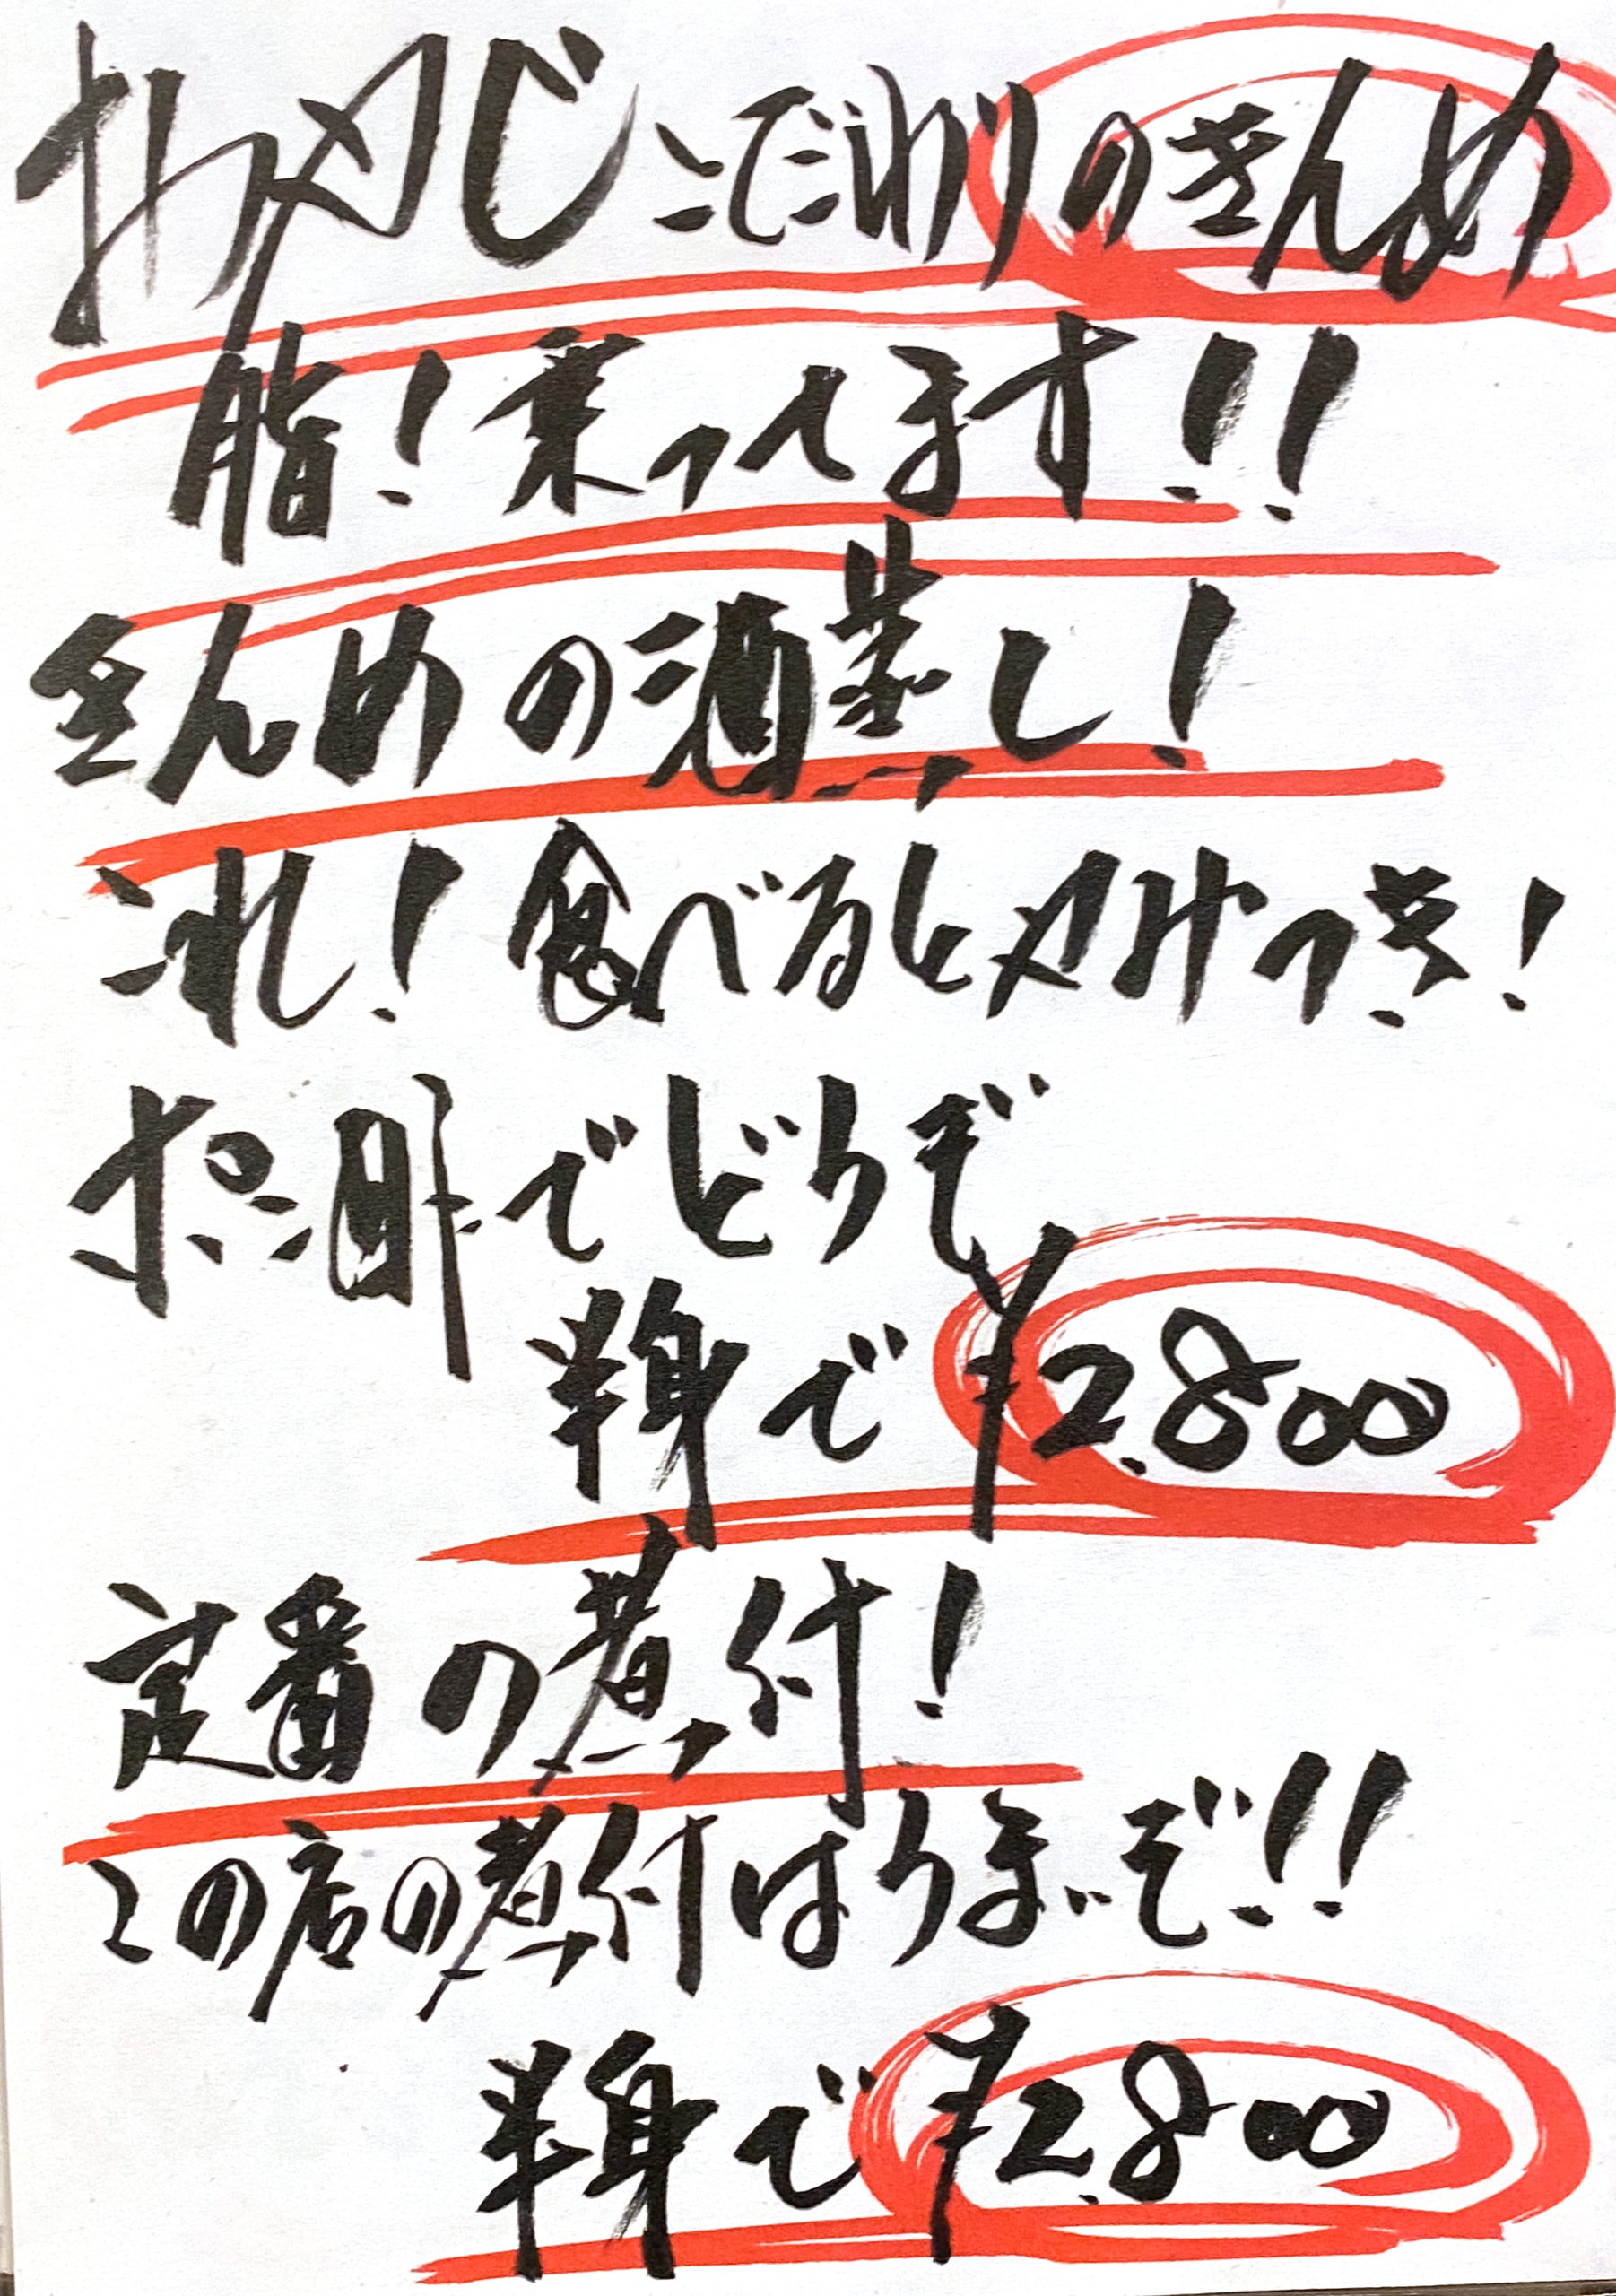 おやじこだわりのきんめ
脂！乗ってます！！
きんめの酒蒸し！
これ！食べるとやみつき！
ポン酢でどうぞ
半身で¥2.800
定番の煮付！
この店の煮付はうまいぞ！！
半身で¥2.800